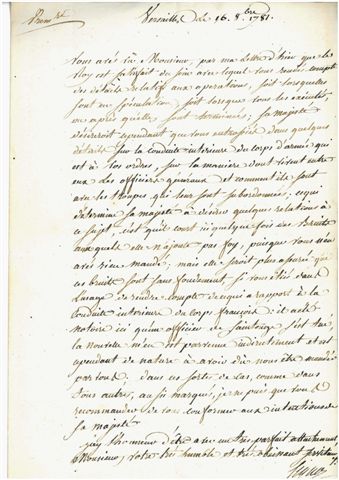 Versailles le 16. 8.bre 1781.
Vous avés vû, Monsieur, par ma Lettre d'hier que le
Roy est satisfait du soin avec lequel vous rendés compte
des détails relatifs aux operations, soit lorsquelles
sont en spéculation, soit lorsque vous les exécutés,
ou après quelles sont terminées; sa majesté
désireroit cependant que vous entrassiés dans quelques
détails sur la conduite interieure du corps d'armée qui
est à vos ordres, sur la maniere dont vivent entre
eux les officiers généraux et comment ils sont
avec les troupes qui leur sont subordonnées; ce qui
détermine sa majesté à desirer quelques relations à
ce sujet, c'est qu'il court ici quelque fois des Bruits
auxquels elle n'ajoute pas foy, puisque vous n'en
avés rien mandé; mais elle seroit plus assurée que
ces bruits sont sans fondement, si vous étiés dans
l'usage de rendre compte de ce qui a rapport à la
conduite interieure du corps françois: il a été
notoire ici qu'un officier de Saintonge s'est tué,
la nouvelle m'en est parvenue indirectement et est
cependant de nature à avoir dû nous être mandée
par vous; dans ces sortes de cas, comme dans
tous autres, au fur marqué, je ne puis que vous
recommander de vous conformer aux intentions de
sa majesté.
j'ay l'honneur d'être avec un très parfait attachement,
Monsieur, votre très humble et très obéissant serviteur
Ségur